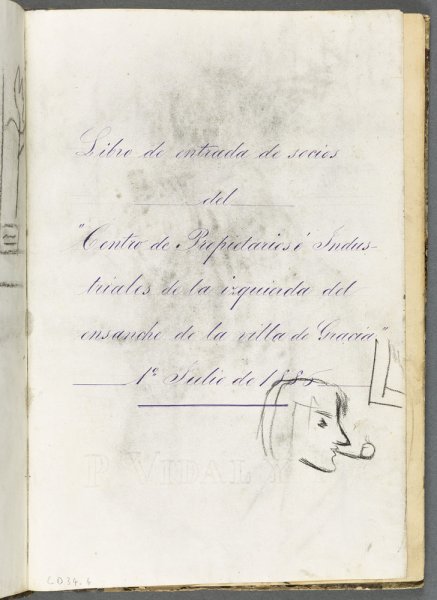 Libro de entrada de socios
del
"Centro de Propietarios é Indus-
triales de la izquierda del
ensanche de la villa de Gracia"
1º Julio de 1885
P. VIDAL
LD34.6